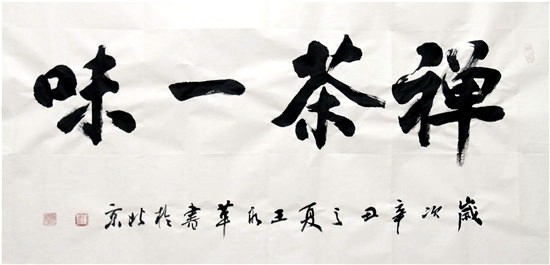 禅茶一味
歲次辛丑之夏王永革書於北京